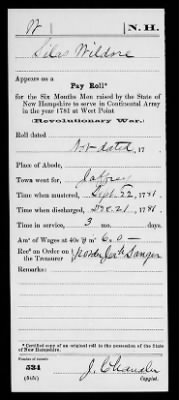 W | N. H.
Silas Wildore
Appears as a
Pay Roll*
for the Six Months Men raised by the State of
New Hampshire to serve in Continental Army
in the year 1781 at West Point
(Revolutionary War.)
Roll dated
Not dated, 17 .
Place of Abode,
Town went for, Jaffrey
Time when mustered, Sept. 22, 1781.
Time when discharged, Dec. 21, 1781.
Time in service, 3 mos. days.
Am't of Wages at 40s ⅌ m. 6. 0 –
Rec'd on Order on
the Treasurer
Remarks:
* Certified copy of an original roll in the possession of the State
of New Hampshire.
Number of record:
534
J. Chandler
(848c) Copyist.